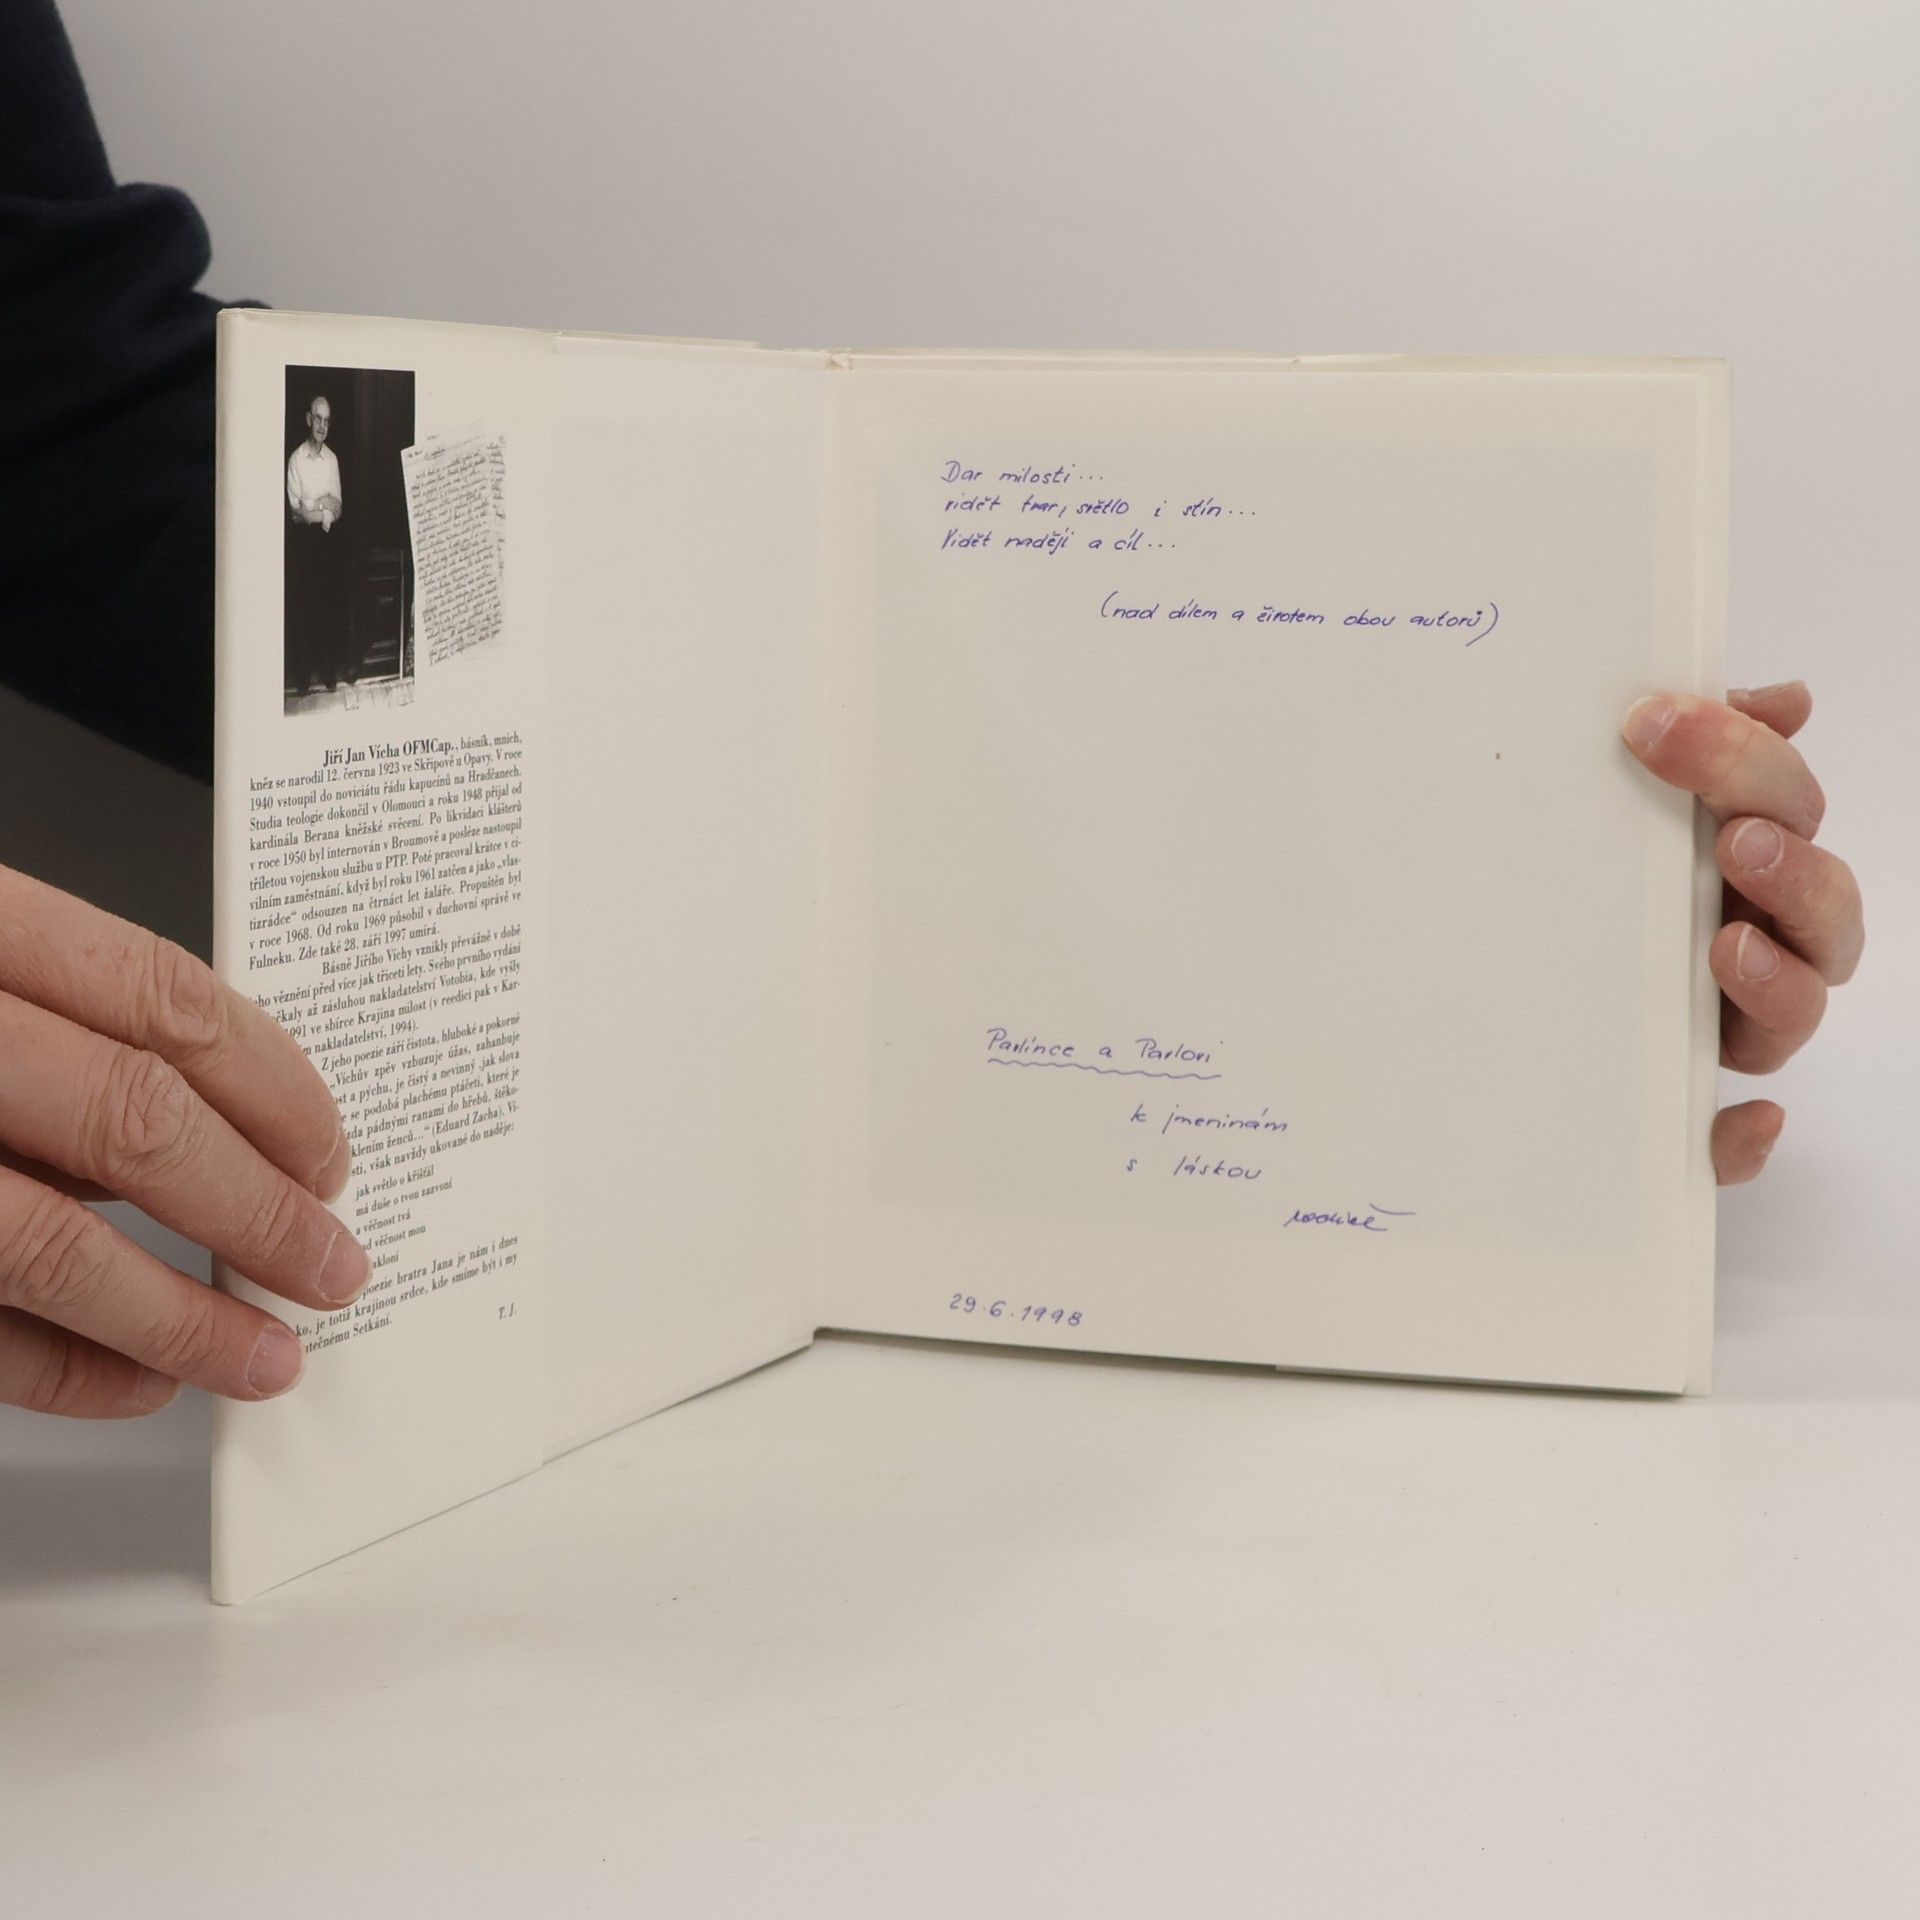 Jiří Jan Vícha OFMCap., básník, mnich,
kněz se narodil 12. června 1923 ve Skřipově u Opavy. V roce
1940 vstoupil do noviciátu řádu kapucínů na Hradčanech.
Studia teologie dokončil v Olomouci a roku 1948 přijal od
kardinála Berana kněžské svěcení. Po likvidaci klášterů
v roce 1950 byl internován v Broumově a posléze nastoupil
tříletou vojenskou službu u PTP. Poté pracoval krátce v ci-
vilním zaměstnání, když byl roku 1961 zatčen a jako „vlas-
tizrádce“ odsouzen na čtrnáct let žaláře. Propuštěn byl
v roce 1968. Od roku 1969 působil v duchovní správě ve
Fulneku. Zde také 28. září 1997 umírá.
Básně Jiřího Víchy vznikly převážně v době
věznění před více jak třiceti lety. Svého prvního vydání
až zásluhou nakladatelství Votobia, kde vyšly
1991 ve sbírce Krajina milost (v reedici pak v Kar-
nakladatelství, 1994).
Z jeho poezie září čistota, hluboké a pokorné
„Víchův zpěv vzbuzuje úžas, zahanbuje
a pýchu, je čistý a nevinný „jak slova
se podobá plachému ptáčeti, které je
pádnými ranami do hřebů, štěko-
ženců...“ (Eduard Zacha). Ví-
však navždy ukované do naděje:
jak světlo o křišťál
má duše o tvou zazvoní
a věčnost tvá
věčnost mou
poezie bratra Jana je nám i dnes
je totiž krajinou srdce, kde smíme být i my
Setkání.
T. J.
Dar milosti...
vidět tvar, světlo i stín...
Vidět naději a cíl...
(nad dílem a životem obou autorů)
Pavlínce a Pavlovi
k jmeninám
s láskou
rodiče
29.6.1998